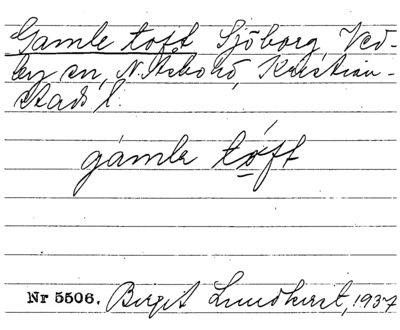 Gamle toft Sjöborg, Ved-
by sn, N. Åsbo hd, Kristian-
stads l.
gámle tóft
Nr 5506. Birgit Lundkvist, 1937